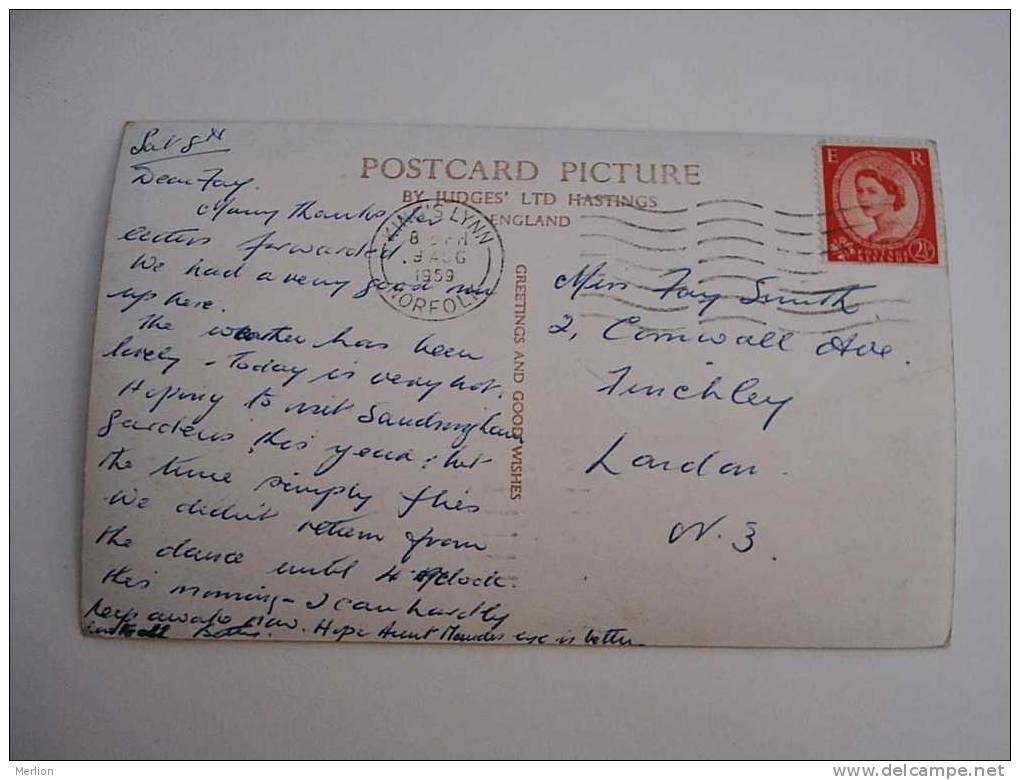 Sat 8th
Dear Fay.
Many thanks for
letters forwarded.
We had a very good run
up here.
The weather has been
lovely - Today is very hot.
Hoping to visit Sandringham
gardens this year, but
the time simply flies
We didn't return from
the dance until 4 o'clock.
this morning - I can hardly
keep awake now. Hope Aunt Maudes eye is better.
POSTCARD PICTURE
BY JUDGES' LTD HASTINGS
ENGLAND
GREETINGS AND GOOD WISHES
KING'S LYNN
9 AUG
1959
NORFOLK
E R
2½D
Miss Fay Smith
2, Cornwall Ave.
Finchley
London.
N. 3.
Merlion
www.delcampe.net